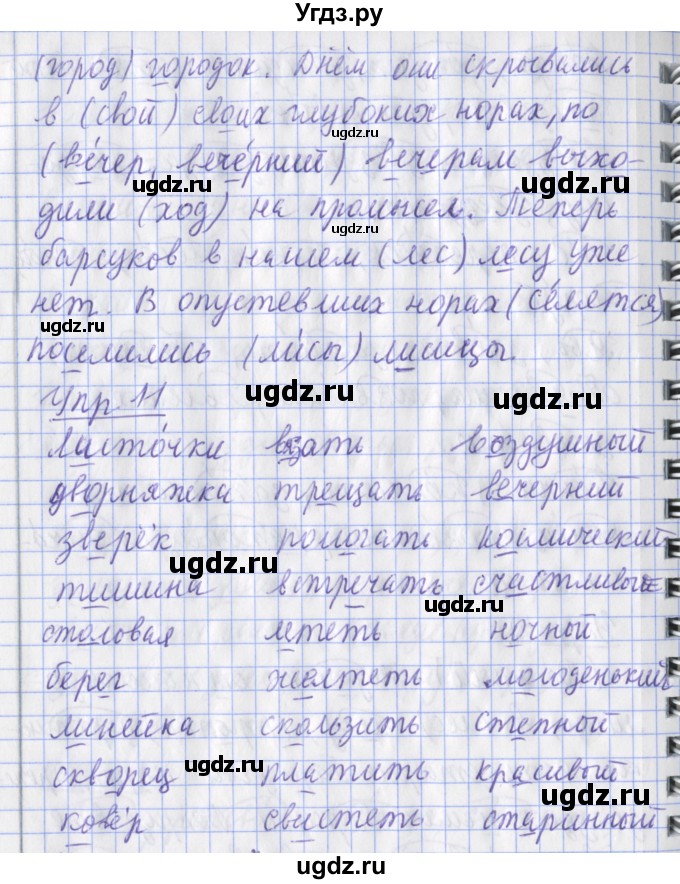 Угдз.ру
(город) городок. Днём они скрывались
в (свой) своих глубоких норах, по
ugdz.ru
(ве́чер, вече́рний) вечерам выхо-
ugdz.ru ugdz.ru
дили (ход) на промысел. Теперь
ugdz.ru
барсуков в нашем (лес) лесу уже
нет. В опустевших норах (се́лятся)
ugdz.ru
поселились (ли́сы) лисицы.
Упр. 11 ugdz.ru ugdz.ru
Ласто́чки вязать воздушный
дворняжка трещать вечерний
ugdz.ru
зверёк помогать космический
ugdz.ru
тишина встречать счастливые
ugdz.ru
столовая лететь ночный
берег желтеть молоденький
линейка скользить степной
скворец платить красивый
ugdz.ru ugdz.ru
ковёр свистеть старинный
ugdz.ru